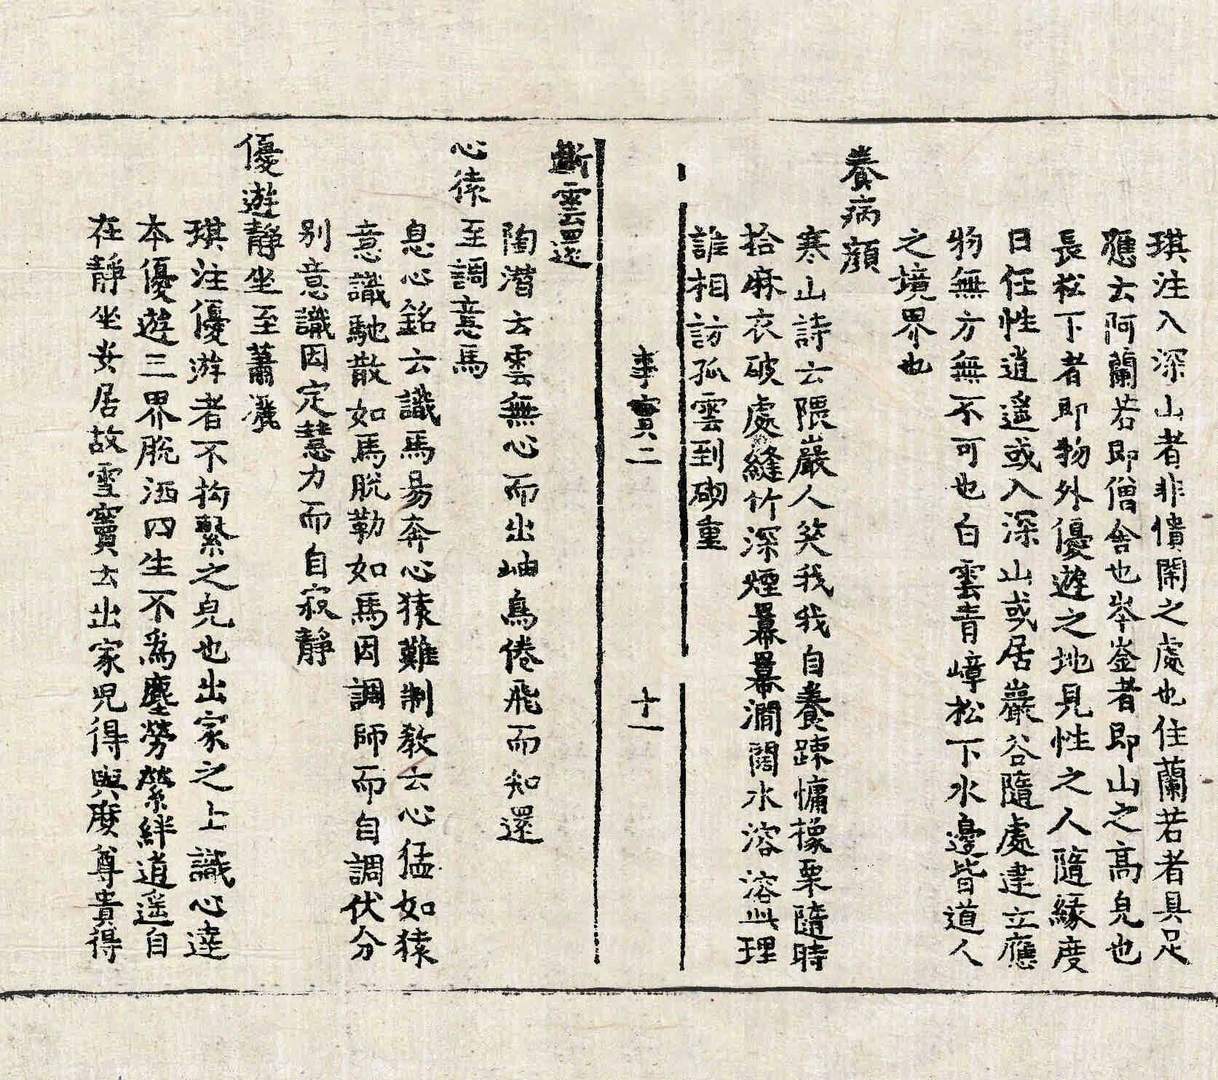 琪注入深山者非憒閙之處也住蘭若者具足
應云阿蘭若即僧舍也岑崟者即山之高皃也
長松下者即物外優遊之地見性之人隨緣度
日任性逍遥或入深山或居巖谷隨處建立應
物無方無不可也白雲青嶂松下水邊皆道人
之境界也
養病顔
寒山詩云隈巖人笑我我自養踈慵橡栗隨時
拾麻衣破處縫竹深煙羃羃澗闊水溶溶此理
誰相訪孤雲到砌重
事實二
十一
斷雲還
陶潛云雲無心而出岫鳥倦飛而知還
心猿至調意馬
息心銘云識馬易奔心猿難制教云心猛如猿
意識馳散如馬脫勒如馬因調師而自調伏分
別意識因定慧力而自寂靜
優遊靜坐至蕭灑
琪注優游者不拘繫之皃也出家之上識心達
本優遊三界脫洒四生不爲塵勞縈絆逍遥自
在靜坐安居故雪竇云出家兒得與麽尊貴得